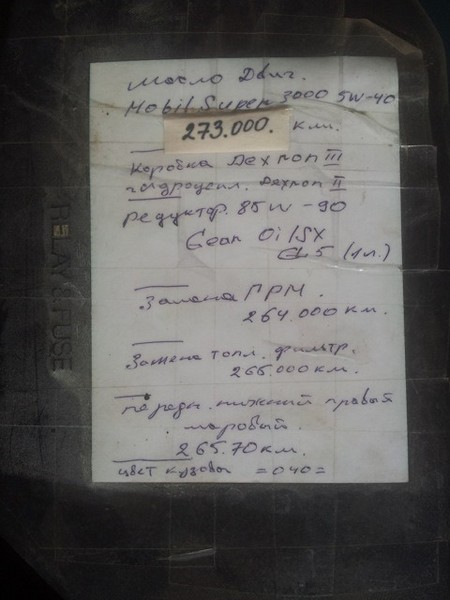 RELAY & FUSE
Масло Двиг.
Mobil Super 3000 5W-40
273.000. км.
Коробка Dexron III
гидроусил. Dexron II
редуктор. 85W-90
Gear Oil SX
GL5 (1л.)
Замена ГРМ.
264.000 км.
Замена топл. фильтр.
265.000 км.
передн. нижний правый
шаровый.
265.70 км.
цвет кузова =040=